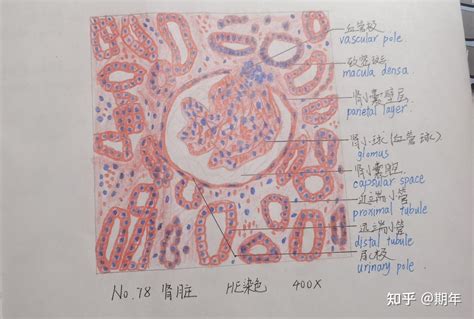 血管极
vascular pole
致密斑
macula densa
肾小囊壁层
parietal layer
肾小球(血管球)
glomus
肾小囊腔
capsular space
近端小管
proximal tubule
远端小管
distal tubule
尿极
urinary pole
No.78 肾脏 HE染色 400X
知乎 @期年